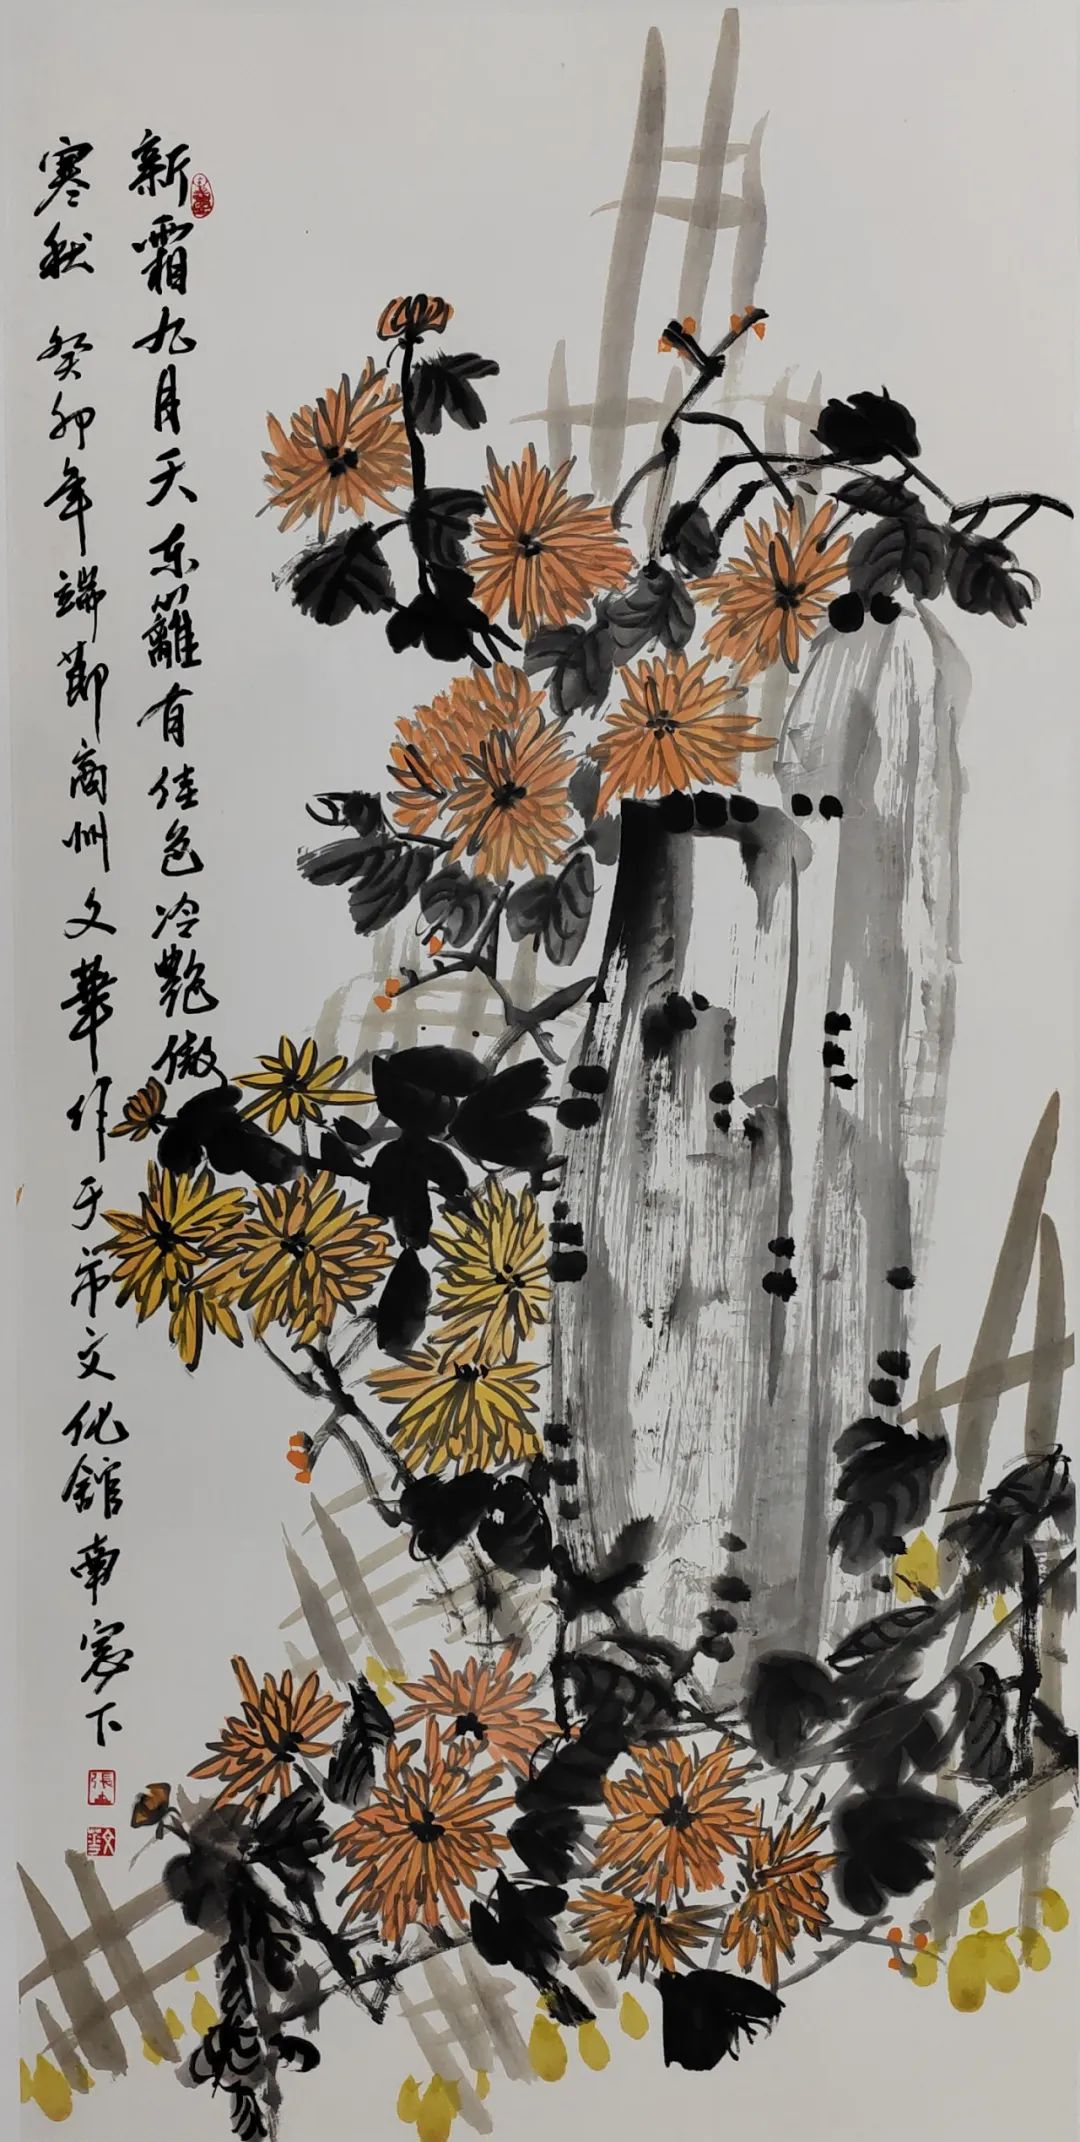 新霜九月天东篱有佳色冷艳傲
寒秋 癸卯年端節商州文華作于市文化館南窗下
張
文華